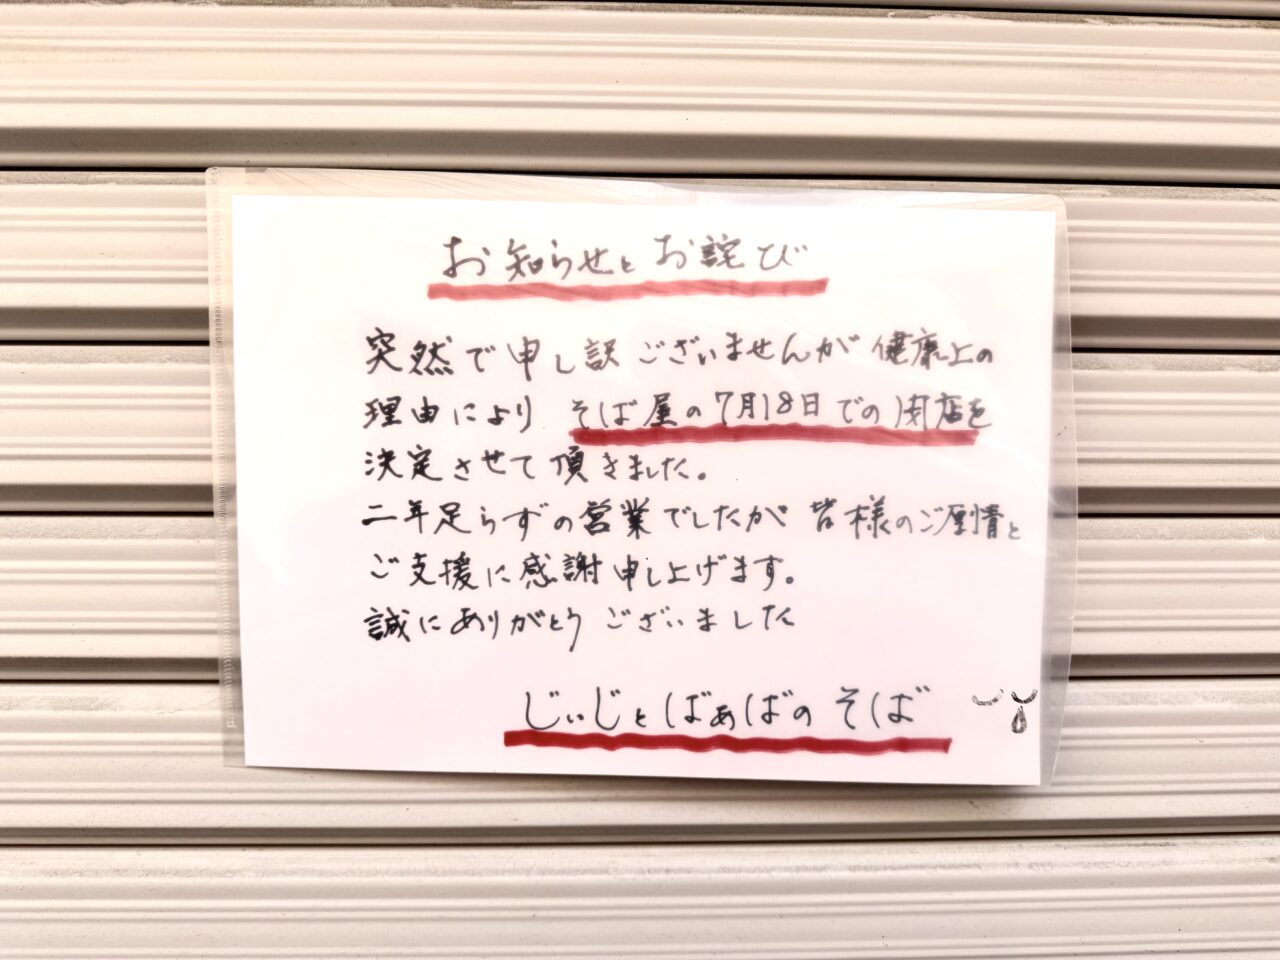 お知らせとお詫び
突然で申し訳ございませんが 健康上の
理由により そば屋の7月18日での閉店を
決定させて頂きました。
二年足らずの営業でしたが 皆様のご厚情と
ご支援に感謝申し上げます。
誠にありがとうございました
じぃじとばぁばの そば